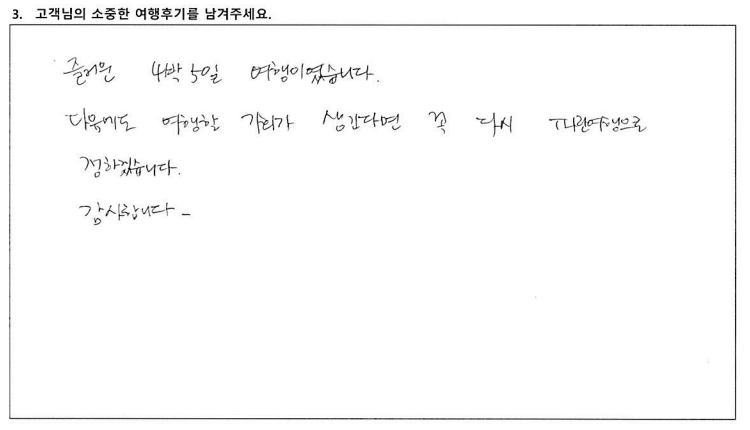 3. 고객님의 소중한 여행후기를 남겨주세요.
즐거운 4박 5일 여행이였습니다.
다음에도 여행할 기회가 생긴다면 꼭 다시 파란여행으로
정하겠습니다.
감사합니다 -